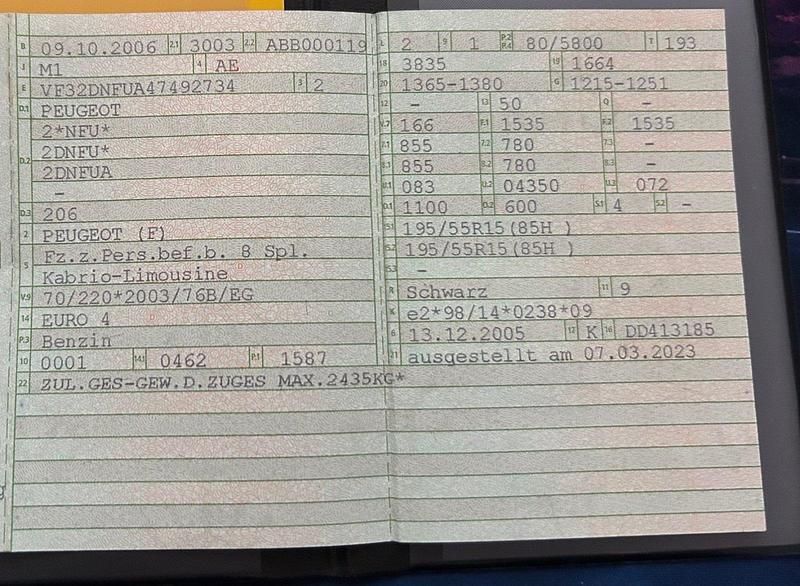 B 09.10.2006 2.1 3003 2.2 ABB000119
J M1 4 AE
E VF32DNFUA47492734 3 2
D.1 PEUGEOT
2*NFU*
2DNFU*
D.2 2DNFUA
–
D.3 206
2 PEUGEOT (F)
5 Fz.z.Pers.bef.b. 8 Spl.
Kabrio-Limousine
V.9 70/220*2003/76B/EG
14 EURO 4
P.3 Benzin
10 0001 14.1 0462 P.1 1587
22 ZUL.GES-GEW.D.ZUGES MAX.2435KG*
L 2 9 1 P.2 P.4 80/5800 T 193
18 3835 19 1664
20 1365-1380 G 1215-1251
12 – 13 50 Q –
V.7 166 F.1 1535 F.2 1535
7.1 855 7.2 780 7.3 –
8.1 855 8.2 780 8.3 –
U.1 083 U.2 04350 U.3 072
O.1 1100 O.2 600 S.1 4 S.2 –
15.1 195/55R15(85H )
15.2 195/55R15(85H )
15.3 –
R Schwarz 11 9
K e2*98/14*0238*09
6 13.12.2005 17 K 16 DD413185
21 ausgestellt am 07.03.2023